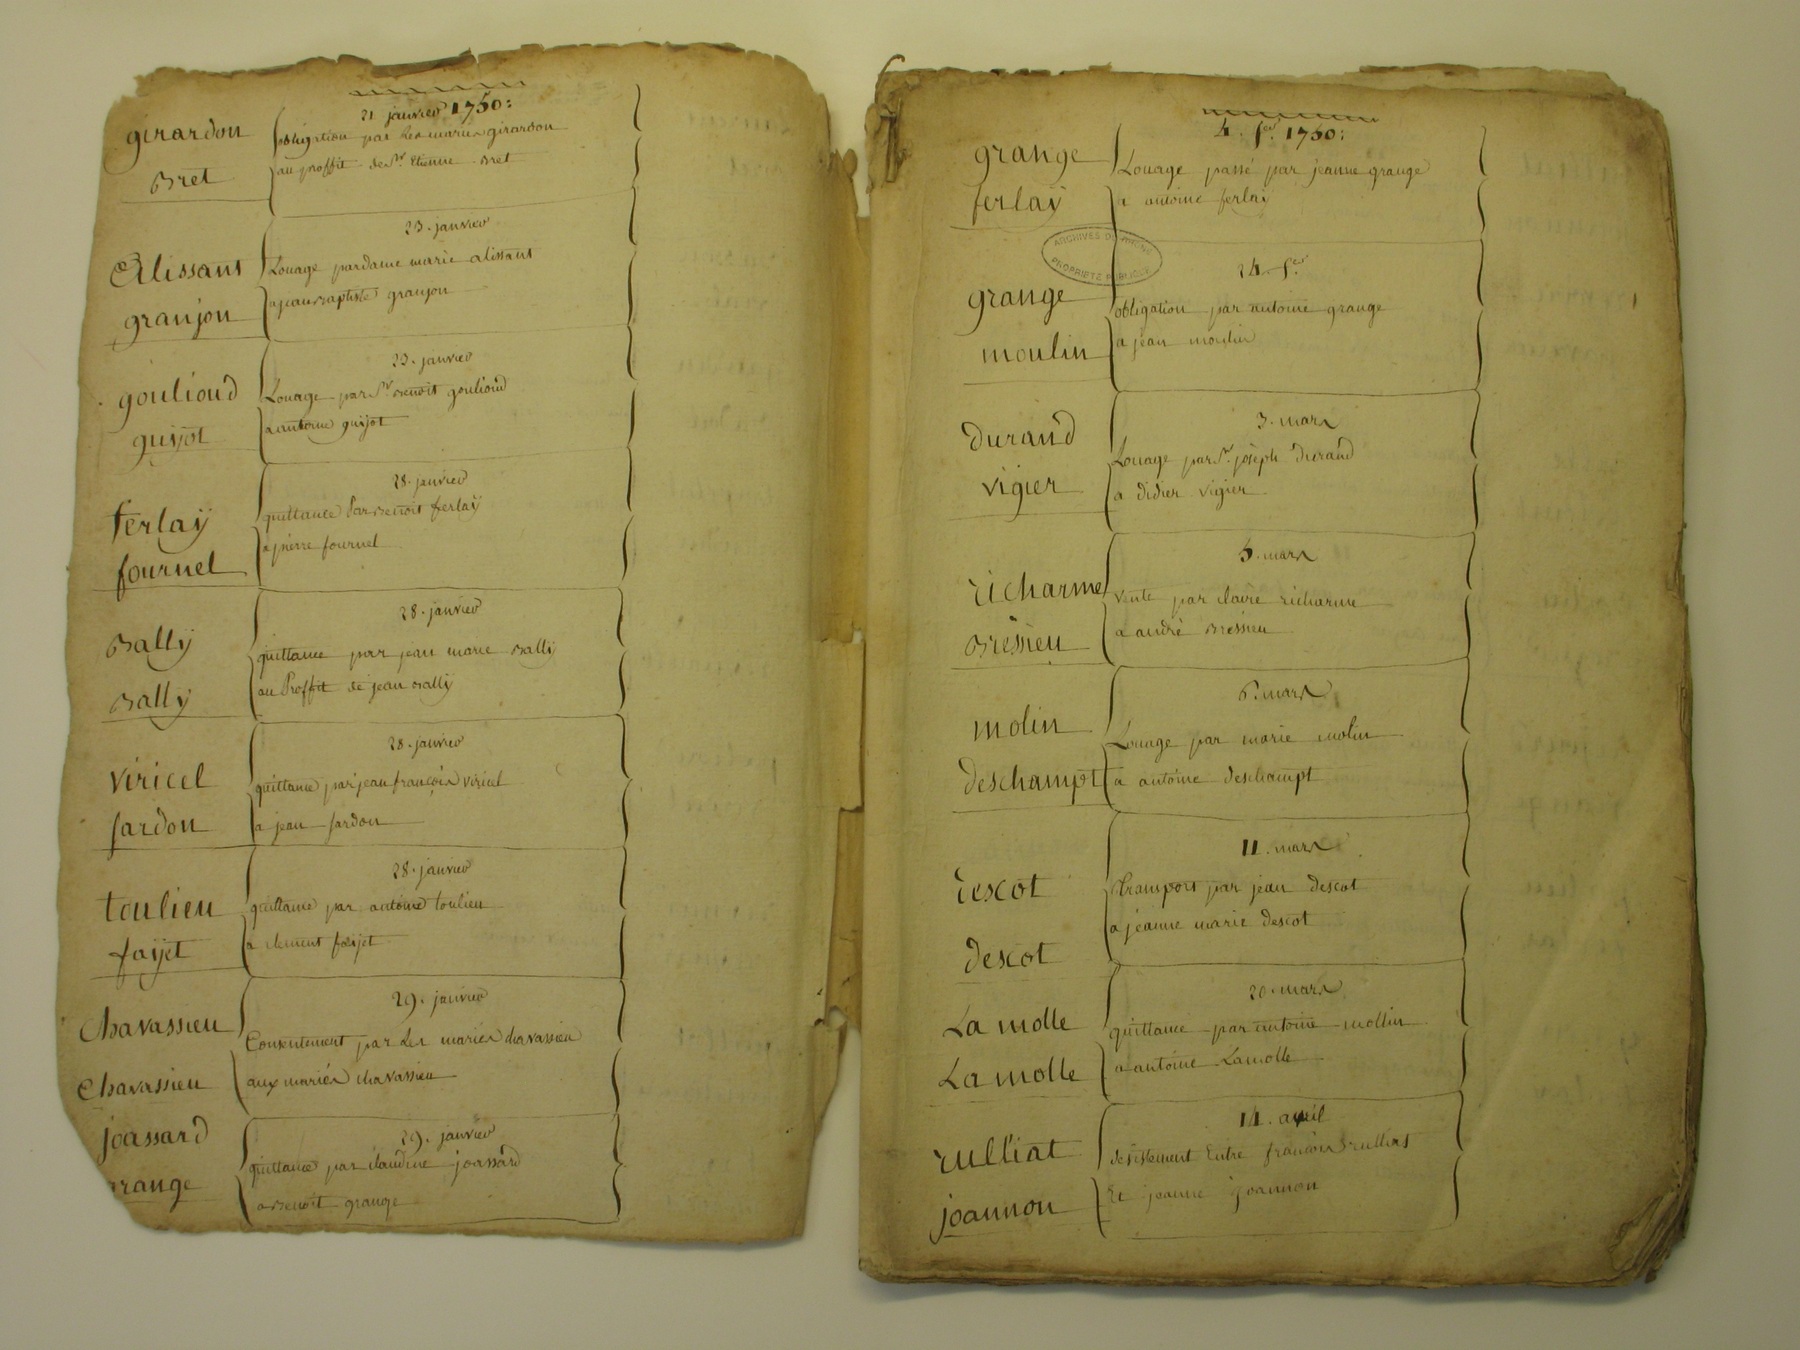 21 janvier 1750:
girardon
obligation par Les mariés girardon
Bret
au proffit de Sr. Etienne Bret
23. janvier
Alissant
Louage par dame marie alissant
granjon
a jean Baptiste granjon
23. janvier
goulioud
Louage par Sr. Benoit goulioud
guijot
a antoine guijot
28. janvier
ferlaÿ
quittance Par Benoit ferlaÿ
fournel
a pierre fournel
28. janvier
Bally
quittance par jean marie Bally
Bally
au Proffit de jean Bally
28. janvier
Viricel
quittance par jean françois viricel
fardon
a jean fardon
28. janvier
toulieu
quittance par antoine toulieu
faÿet
a clement faÿet
29. janvier
Chavassieu
Consentement par Les mariés chavassieu
Chavassieu
aux mariés chavassieu
29. janvier
joassard
quittance par claudine joassard
grange
a Benoit grange
4. fer. 1750:
grange
Louage passé par jeanne grange
ferlaÿ
a antoine ferlaÿ
ARCHIVES DU RHONE
PROPRIETE PUBLIQUE
24. fer
grange
obligation par antoine grange
moulin
a jean moulin
3. mars
Durand
Louage par Sr. joseph Durand
Vigier
a didier vigier
5. mars
richarme
Vente par claire richarme
Bressieu
a andré Bressieu
6. mars
molin
Louage par marie molin
deschampt
a antoine deschampt
11. mars
descot
transport par jean descot
descot
a jeanne marie descot
20. mars
La molle
quittance par antoine mollin
La molle
a antoine Lamolle
14. avril
rulliat
desistement Entre françois rulliat
joannon
Et jeanne joannon